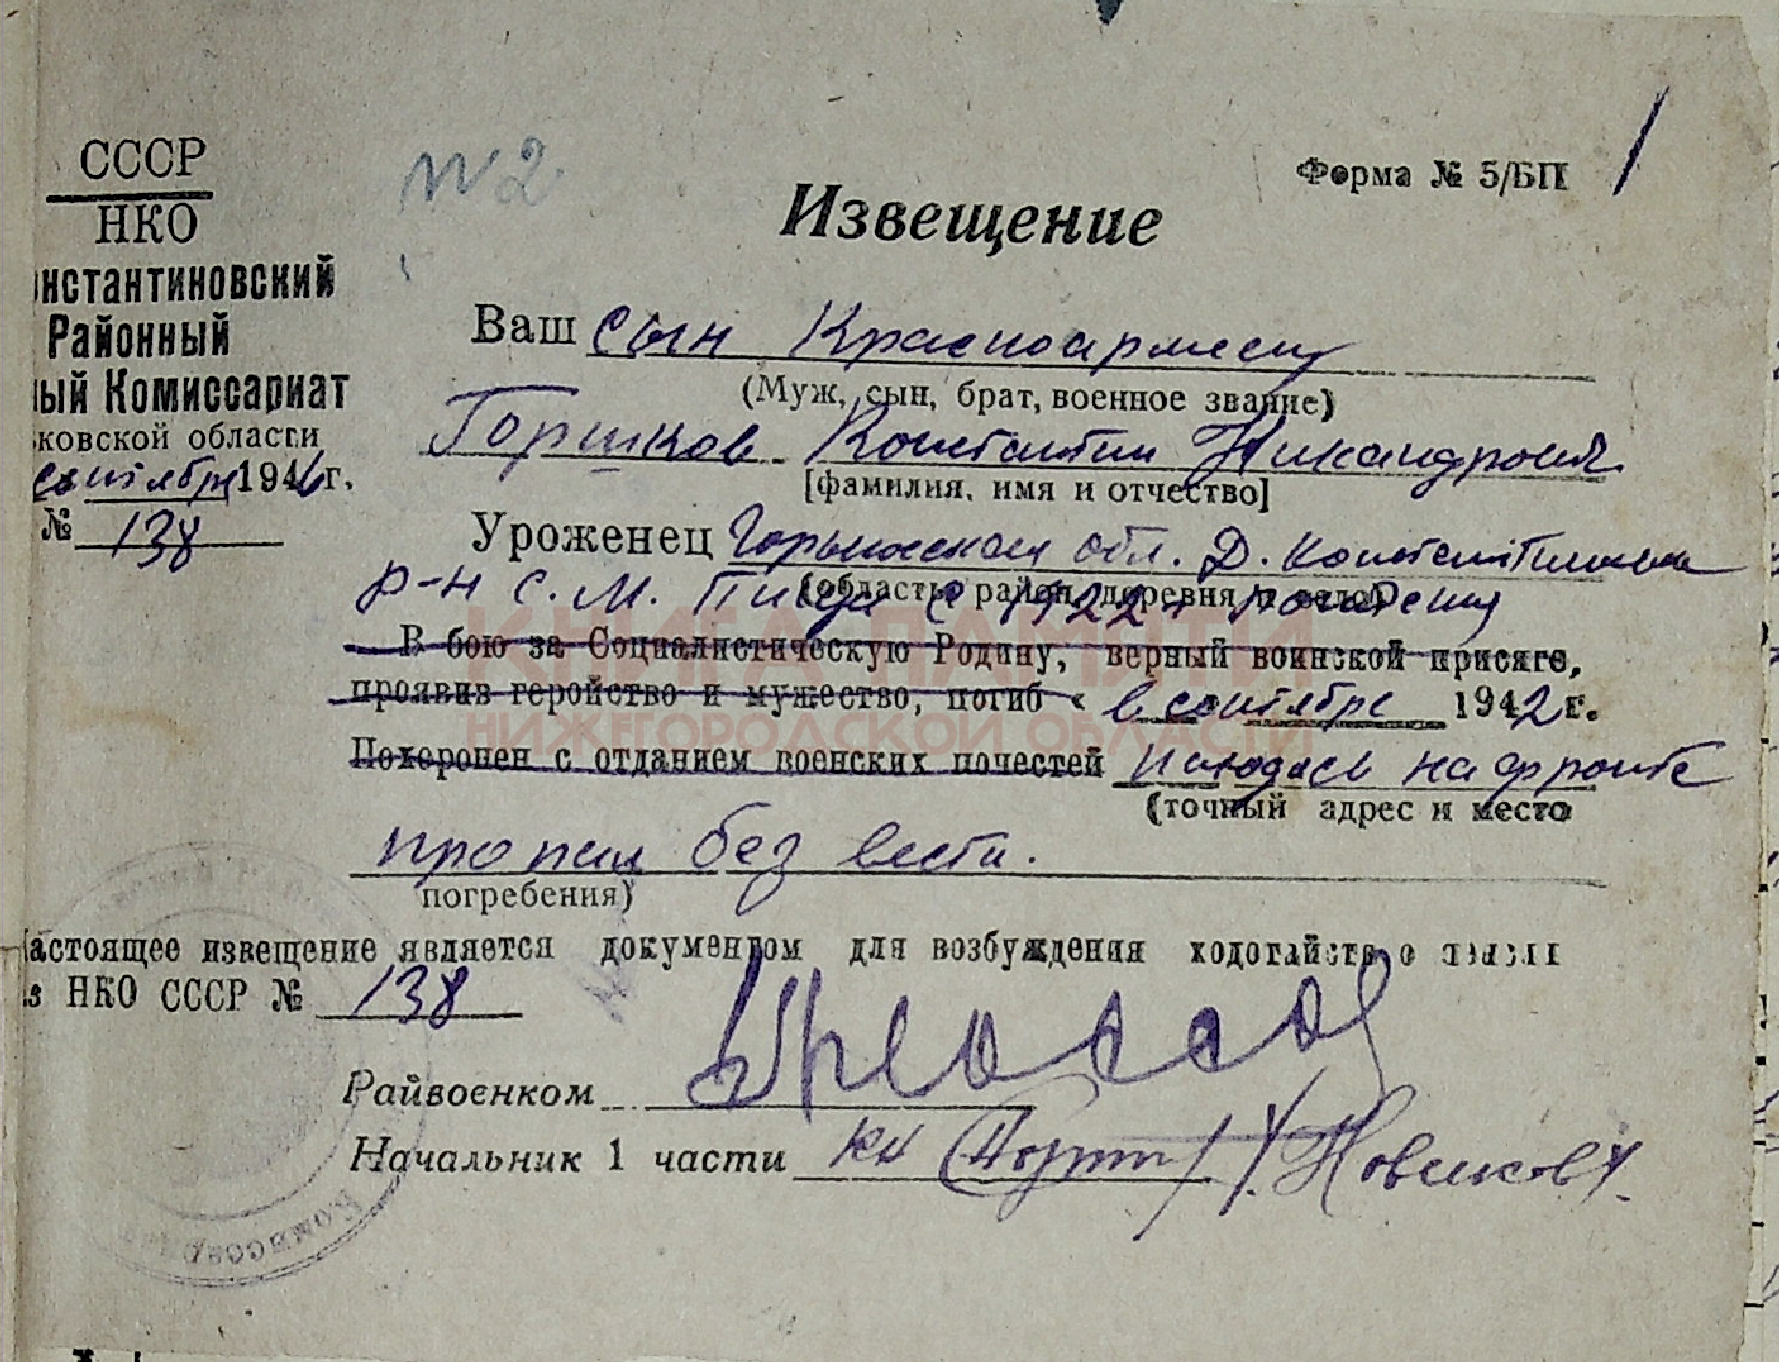 СССР
НКО
онстантиновский
Районный
ный Комиссариат
ьковской области
сентября 1946 г.
№ 138
№ 2
Форма № 5/БП
1
Извещение
Ваш сын Красноармеец
(Муж, сын, брат, военное звание)
Горшков Константин Никандрович
[фамилия, имя и отчество]
Уроженец Горьковская обл. Д. Константиновск
(область, район, деревня и село)
р-н С. М. Пица с 1922 г.
В бою за Социалистическую Родину, верный воинской присяге,
проявив геройство и мужество, погиб « в сентябре 1942 г.
Похоронен с отданием военских почестей находясь на фронте
(точный адрес и место
пропал без вести.
погребения)
астоящее извещение является документом для возбуждения ходотайств о
аз НКО СССР № 138
Райвоенком
Начальник 1 части
Новиков
Комиссар
КНИГА ПАМЯТИ
НИЖЕГОРОДСКОЙ ОБЛАСТИ